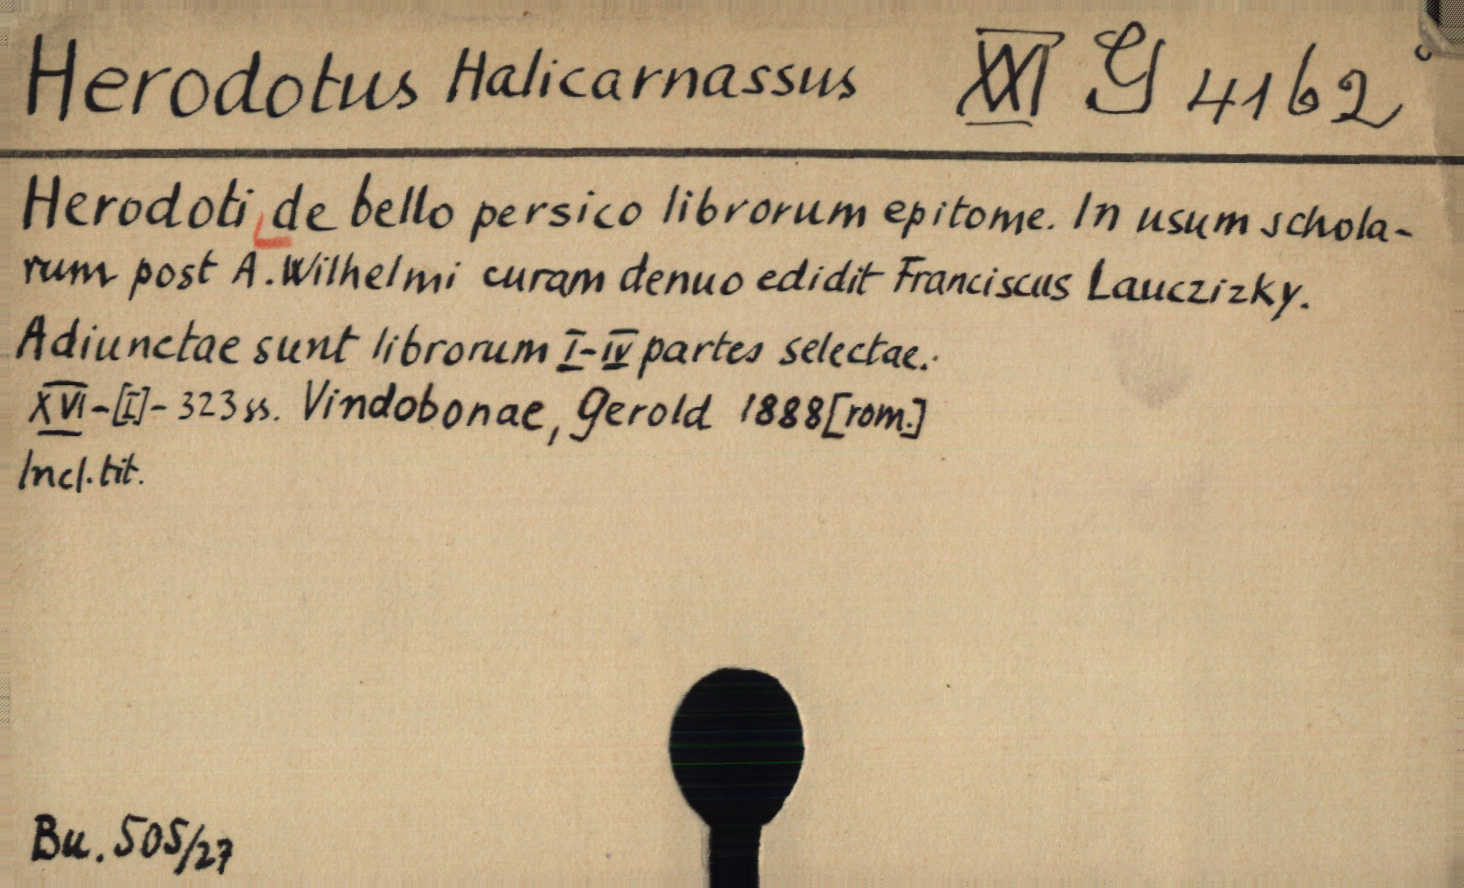 Herodotus Halicarnassus XXI G 4162
Herodoti de bello persico librorum epitome. In usum schola-
rum post A. Wilhelmi curam denuo edidit Franciscus Lauczizky.
Adiunctae sunt librorum I-IV partes selectae.
XVI-[I]-323 ss. Vindobonae, Gerold 1888 [rom.]
Incl. tit.
Bu. 505/27